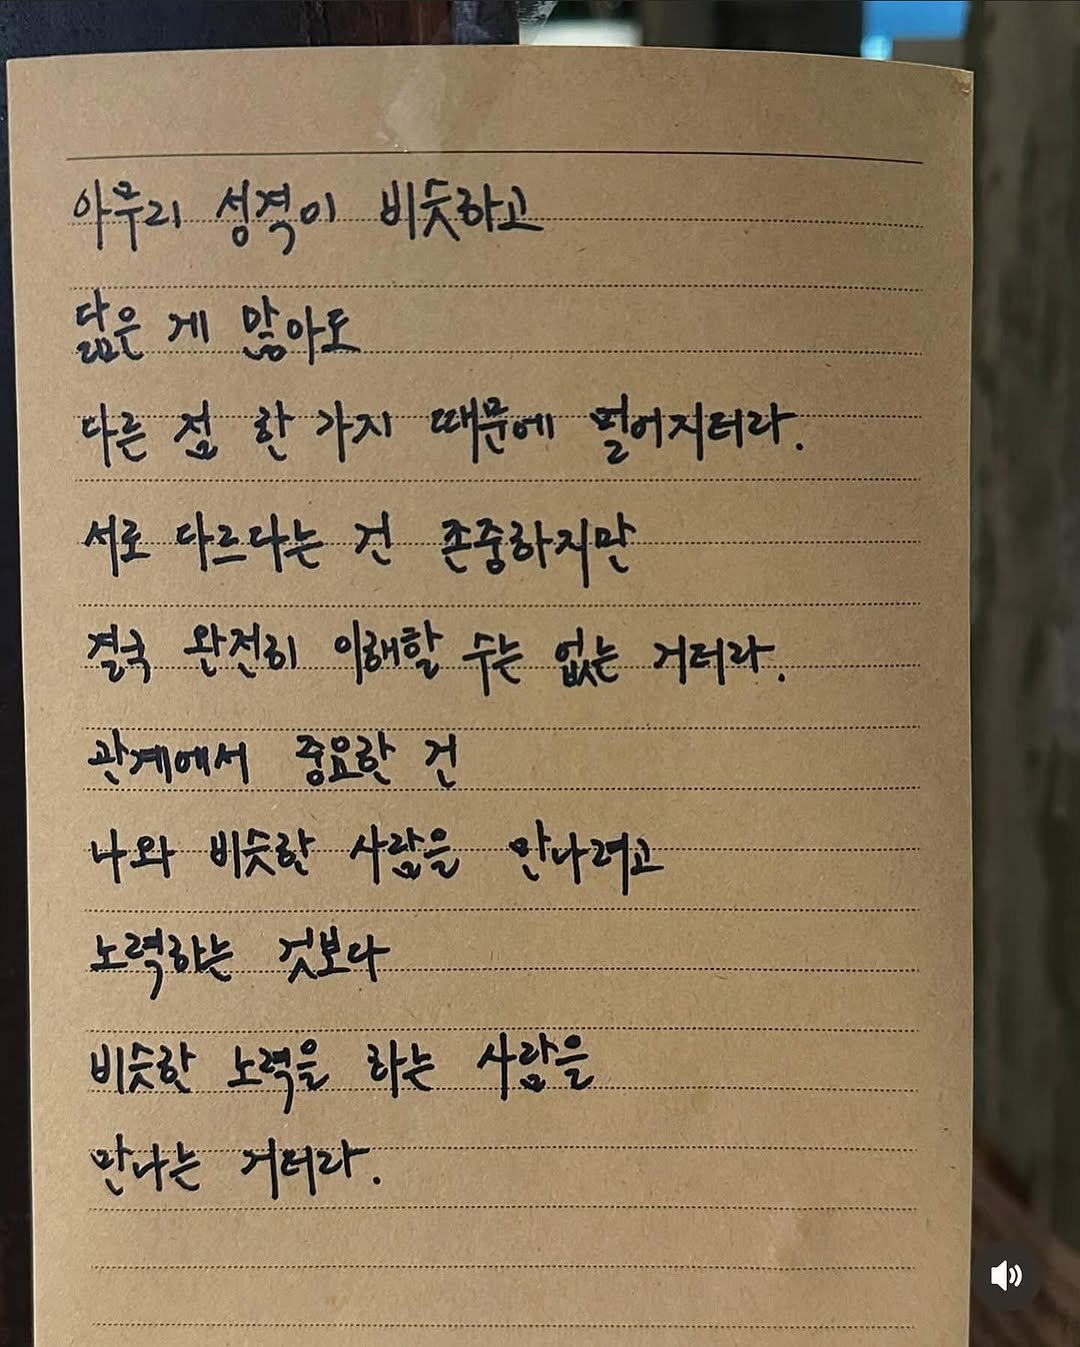 아무리 성격이 비슷하고
닮은 게 많아도
다른 점 한 가지 때문에 멀어지더라.
서로 다르다는 건 존중하지만
결국 완전히 이해할 수는 없는 거더라.
관계에서 중요한 건
나와 비슷한 사람을 만나려고
노력하는 것보다
비슷한 노력을 하는 사람을
만나는 거더라.